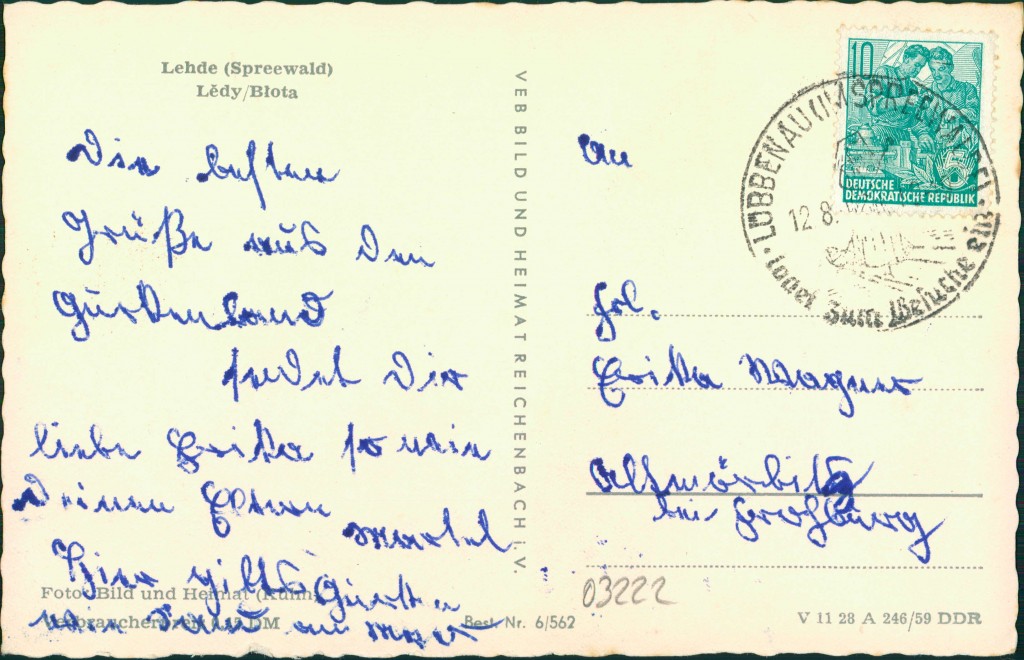 Lehde (Spreewald)
Lědy/Błota
Die besten
Grüße aus dem
Gurkenland
sendet Dir
liebe Erika sowie
Deinen Eltern
Martel
Hier gibts Gurken
wie Sand am Meer
Foto: Bild und Heimat (Kühn)
Verbraucherpreis 0,15 DM
Best. Nr. 6/562
VEB BILD UND HEIMAT REICHENBACH i. V.
10
DEUTSCHE
DEMOKRATISCHE REPUBLIK
LÜBBENAU (IM SPREEWALD)
12.8.
ladet zum Besuche ein
An
Frl.
Erika Wagner
Altmörbitz
bei Frohburg
03222
V 11 28 A 246/59 DDR